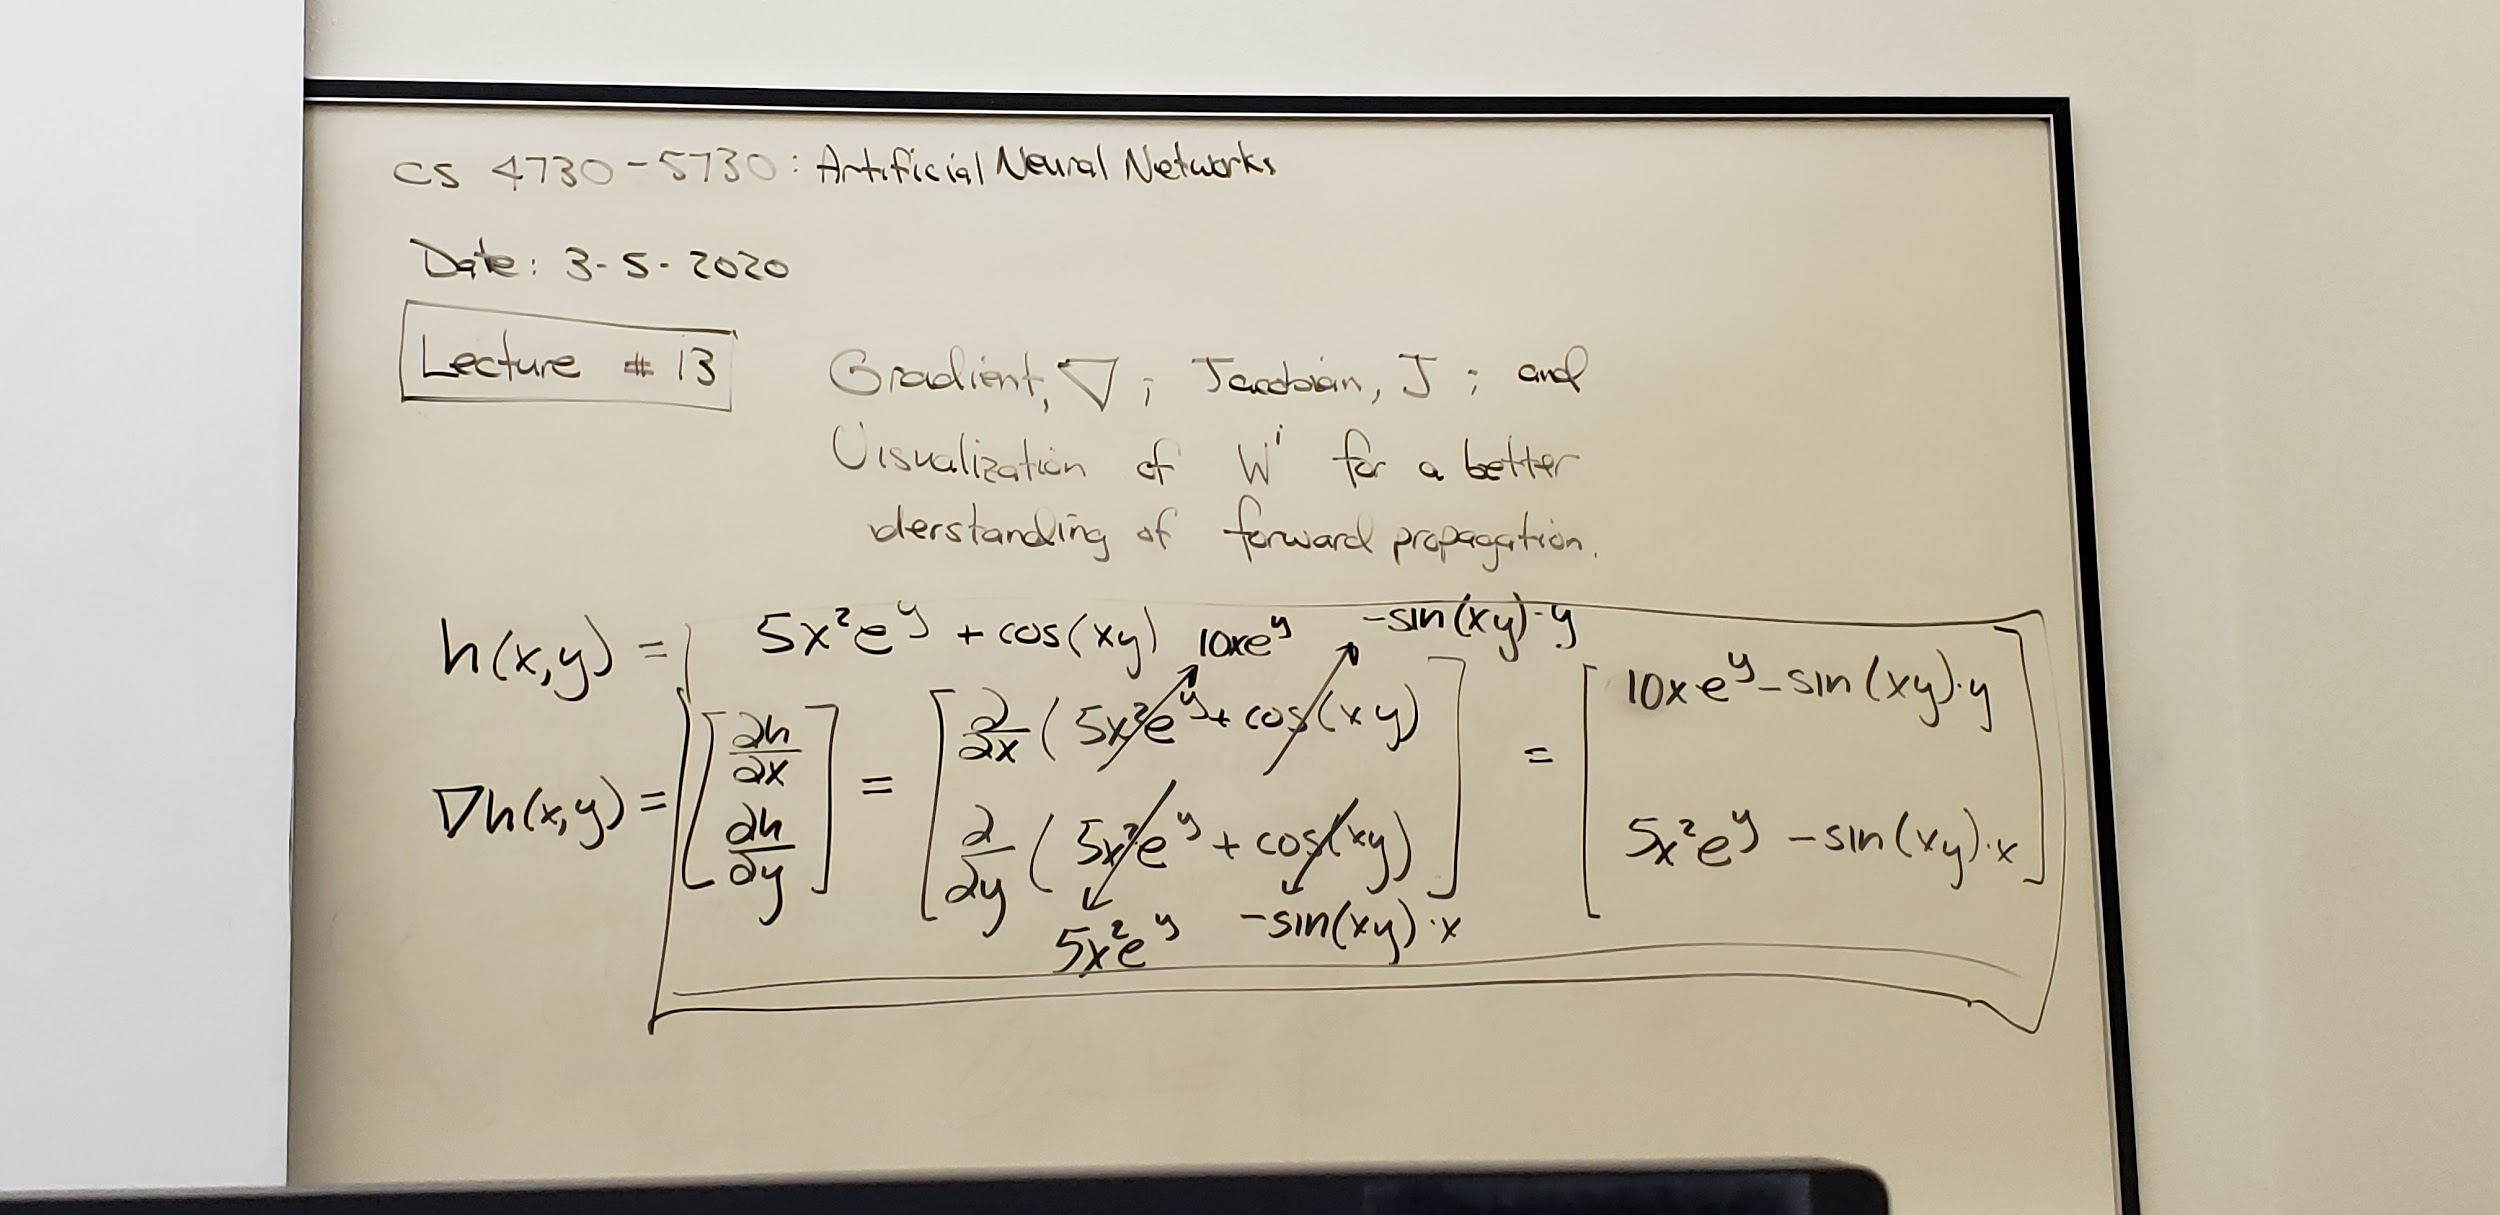 CS 4730-5730: Artificial Neural Networks
Date: 3-5-2020
Lecture #13
Gradient, ∇; Jacobian, J; and
Visualization of Wⁱ for a better
derstanding of forward propagation.
h(x,y) = 5x²e^y + cos(xy)
10xe^y -sin(xy)·y
∇h(x,y) = [∂h/∂x ∂h/∂y] = [∂/∂x (5x²e^y + cos(xy) ∂/∂y (5x²e^y + cos(xy))] = [10xe^y - sin(xy)·y 5x²e^y - sin(xy)·x]
5x²e^y -sin(xy)·x